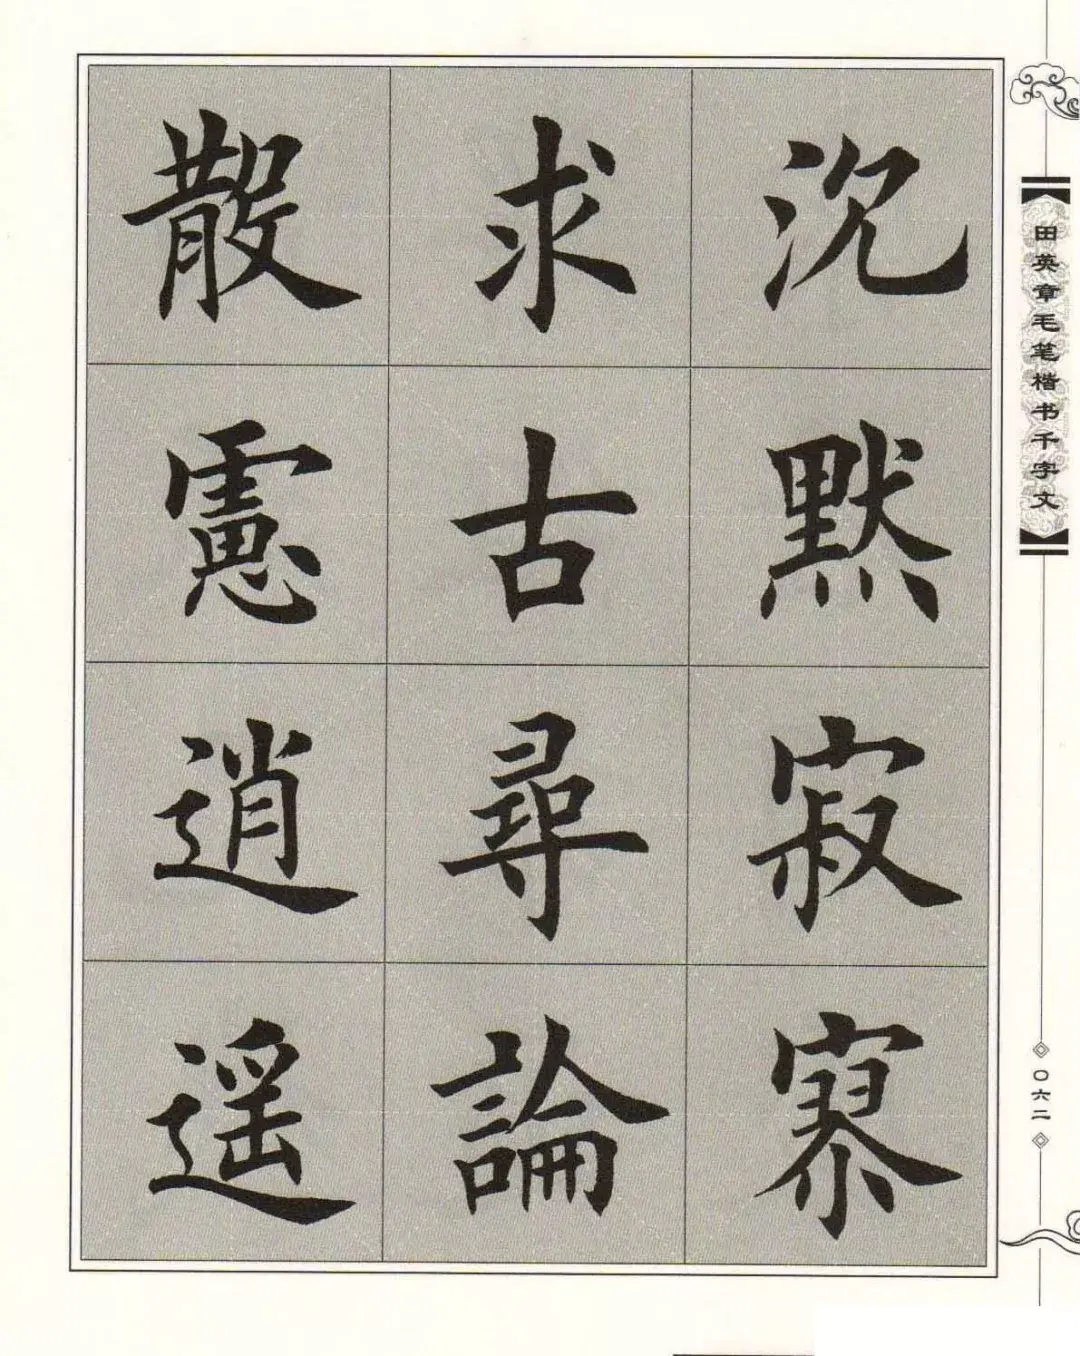 沉默寂寥
求古尋論
散慮逍遥
田英章毛笔楷书千字文
〇六二